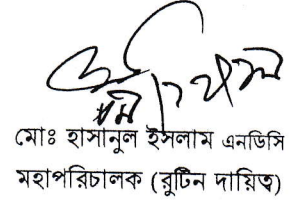 মোঃ হাসানুল ইসলাম এনডিসি
মহাপরিচালক (রুটিন দায়িত্ব)